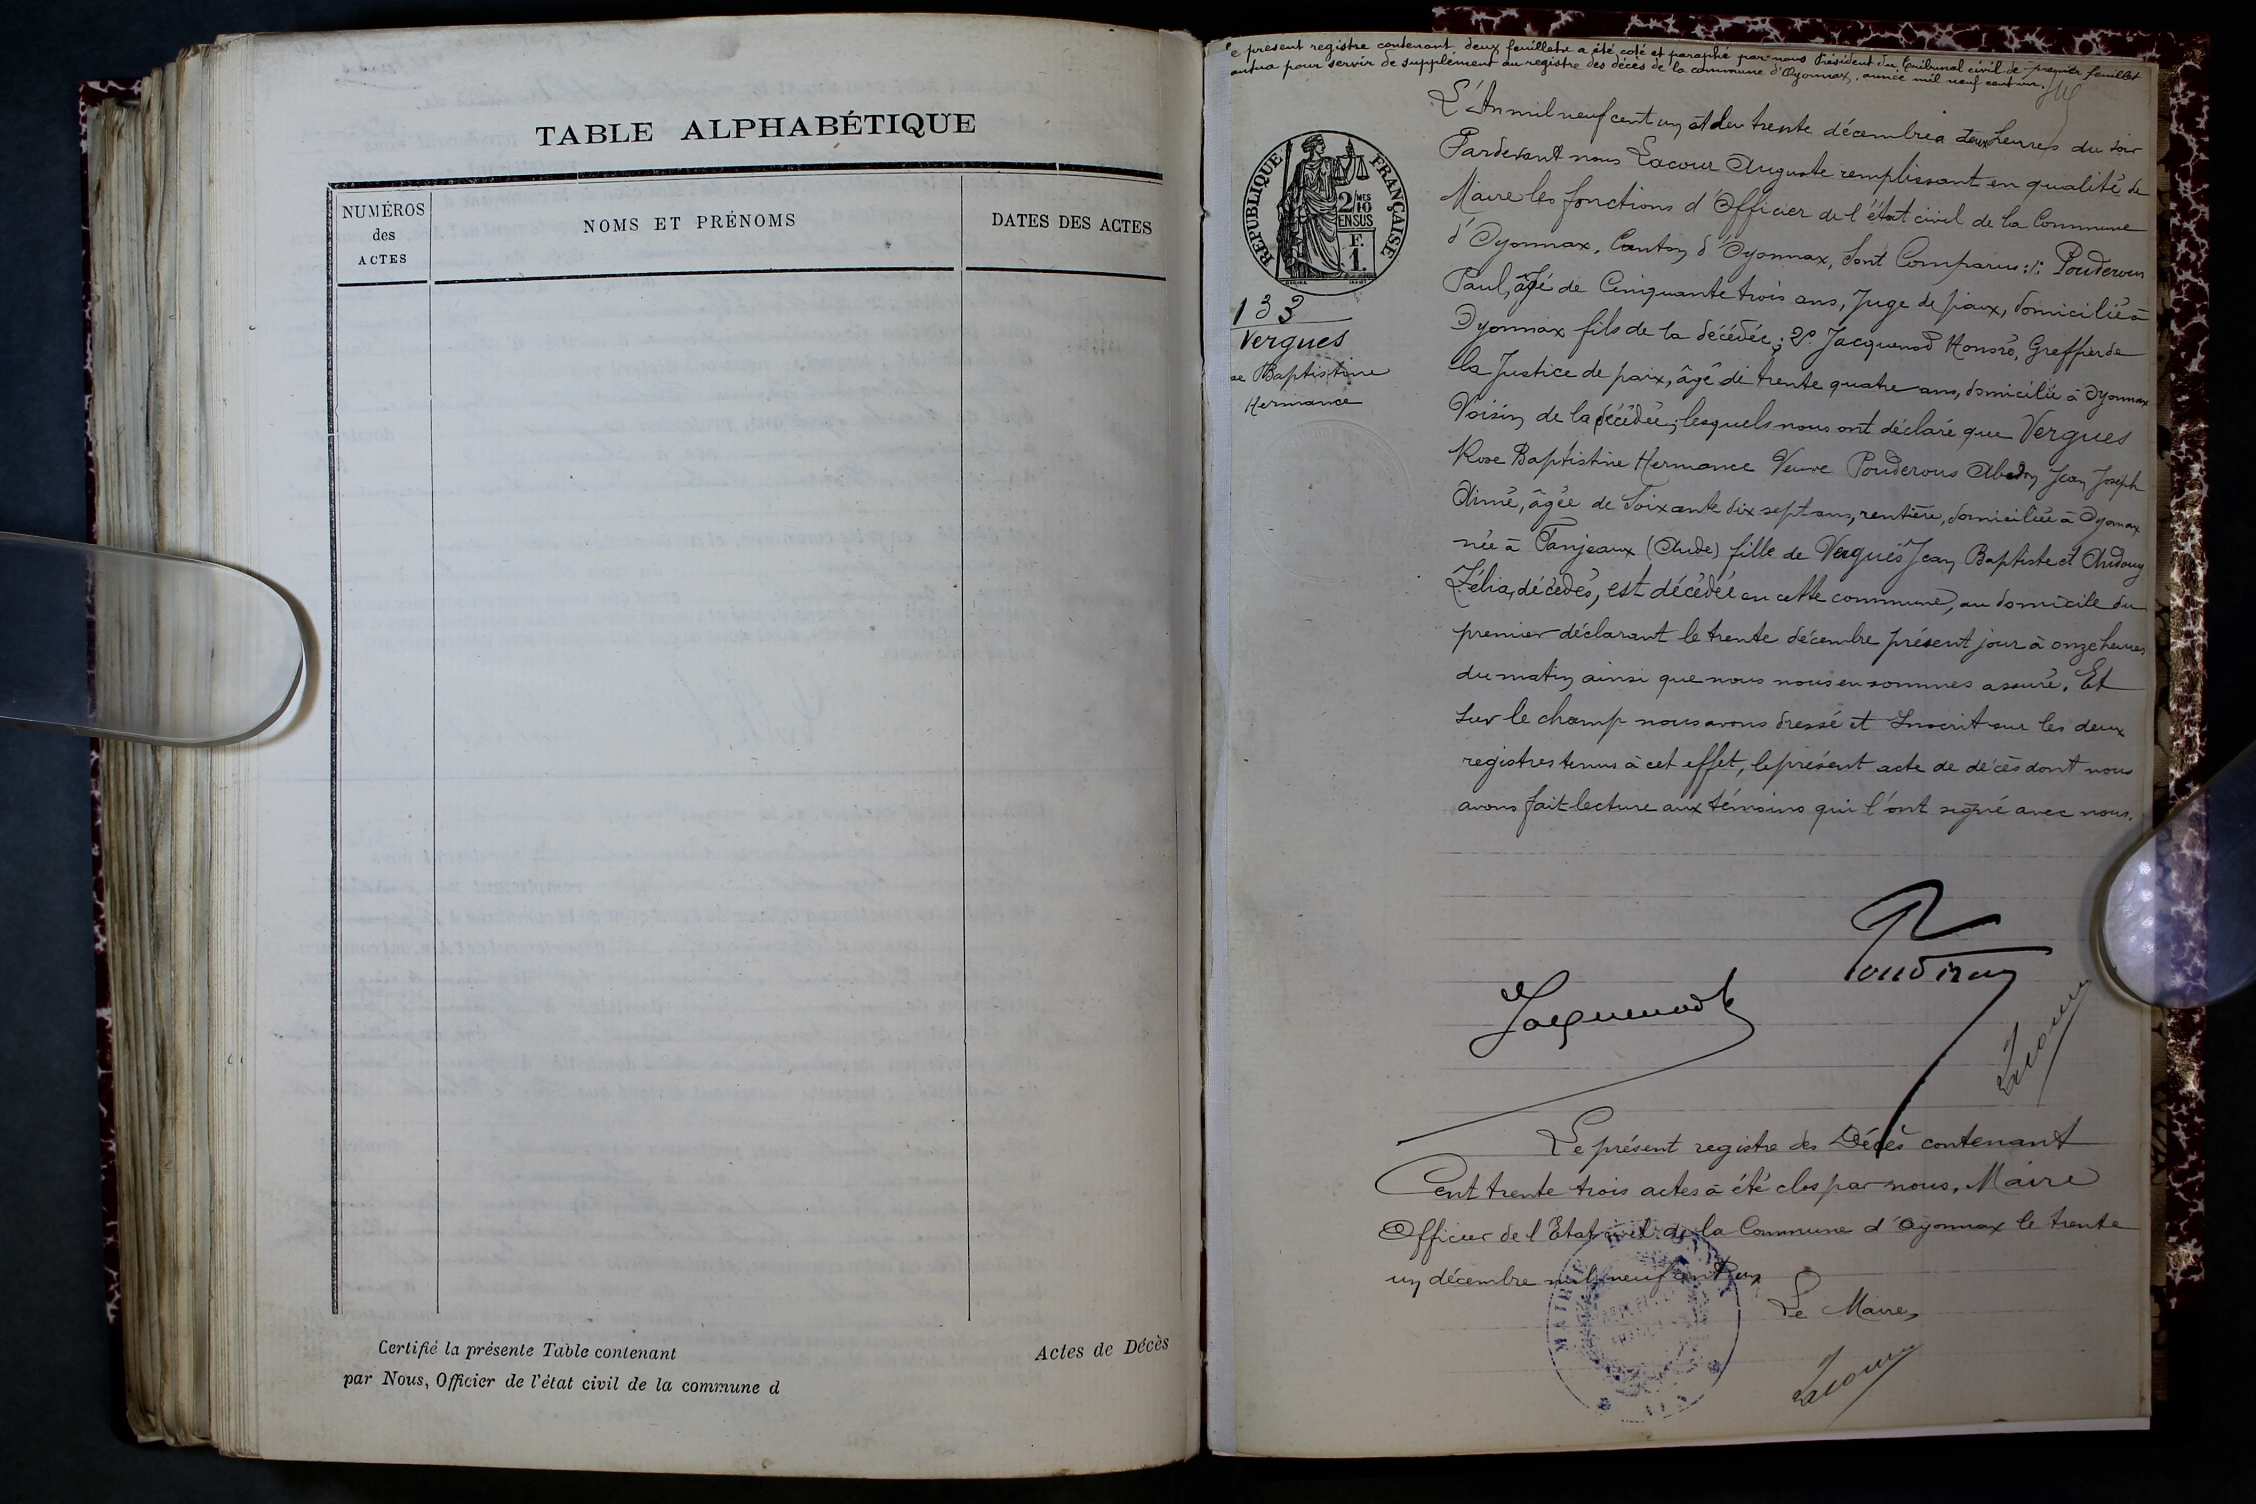 TABLE ALPHABÉTIQUE
NUMÉROS
des
ACTES
NOMS ET PRÉNOMS
DATES DES ACTES
Certifié la présente Table contenant
Actes de Décès
par Nous, Officier de l'état civil de la commune d
e présent registre contenant deux feuillets a été coté et paraphé par nous Président du Tribunal civil de premier feuillet
antua pour servir de supplément au registre des décès de la commune d'Oyonnax, année mil neuf cent un.
RÉPUBLIQUE FRANÇAISE
2/10
EN SUS
F.
1.
133
Vergues
se Baptistine
Hermance
L'An mil neuf cent un et le trente décembre à deux heures du soir
Pardevant nous Lacour Auguste remplissant en qualité de
Maire les fonctions d'Officier de l'état civil de la Commune
d'Oyonnax, Canton d'Oyonnax, sont Comparus: 1º Pouderous
Paul, âgé de Cinquante trois ans, Juge de paix, domicilié à
Oyonnax fils de la décédée; 2º Jacquenod Honoré, Greffier de
la Justice de paix, âgé de trente quatre ans, domicilié à Oyonnax
Voisin de la décédée; lesquels nous ont déclaré que Vergues
Rose Baptistine Hermance Veuve Pouderous Abdon Jean Joseph
Aimé, âgée de Soixante dix sept ans, rentière, domiciliée à Oyonnax
née à Fanjeaux (Aude) fille de Vergues Jean Baptiste et Andouy
Zélia, décédés, est décédée en cette commune, au domicile du
premier déclarant le trente décembre présent jour à onze heures
du matin ainsi que nous nous en sommes assuré. Et
sur le champ nous avons dressé et Inscrit sur les deux
registres tenus à cet effet, le présent acte de décès dont nous
avons fait lecture aux témoins qui l'ont signé avec nous.
Pouderous
Jacquenod
Lacour
Le présent registre des Décès contenant
Cent trente trois actes a été clos par nous, Maire
Officier de l'Etat civil de la Commune d'Oyonnax le trente
un décembre mil neuf cent un
Le Maire,
Lacour
MAIRIE
AIN